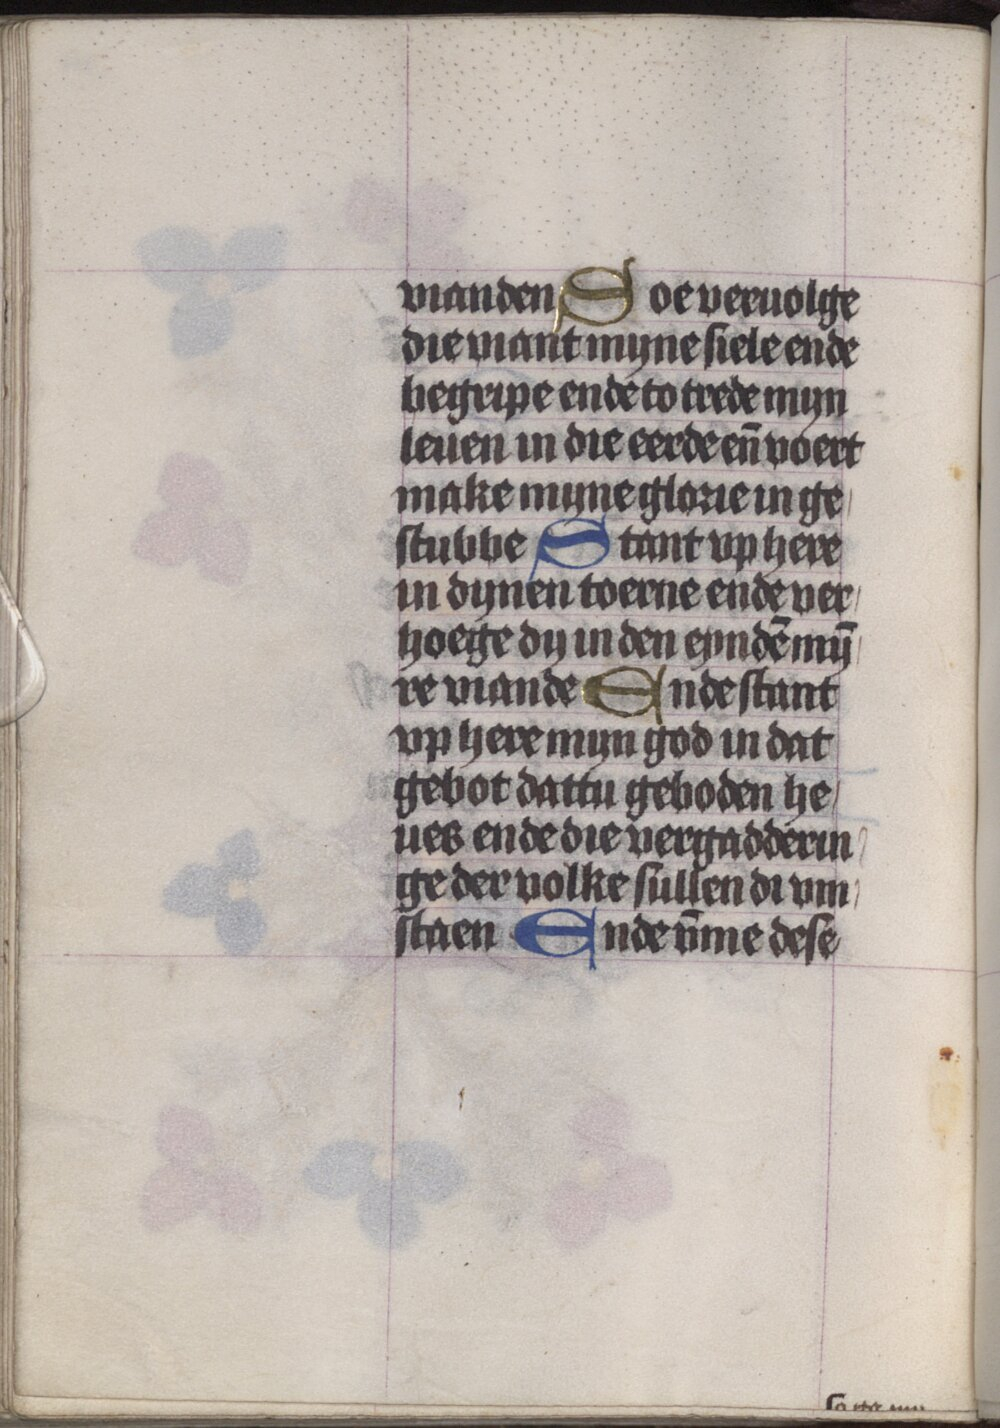 vianden Soe veruolge
die viant myne siele ende
begripe ende to trede myn
leuen in die eerde en̄ voert
make myne glorie in ge/
stubbe Stant vp here
in dynen toerne ende ver/
hoege dy in den eyndē mȳ/
re viande Ende stant
vp here myn god in dat
gebot dattu geboden he/
ues ende die vergadderin/
ge der volke sullen di vm/
staen Ende v̄me dese